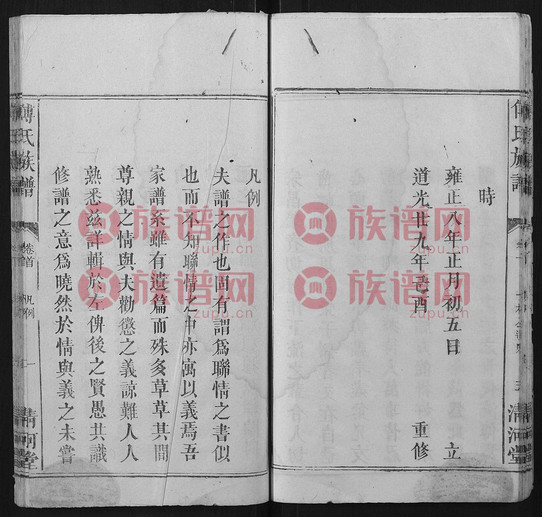 傅氏族譜
清河堂
時
雍正八年正月初五日 立
道光廿九年己酉 重修
凡例
夫譜之作也固有謂爲聯情之書似
也而不知聯情之中亦寓以義焉吾
家譜系雖有遺篇而殊多草草其間
尊親之情與夫勸懲之義諒難人人
熟悉茲詳輯於左俾後之賢愚共識
修譜之意爲曉然於情與義之未嘗
傅氏族譜
卷首
凡例
一
清河堂
族谱网
zupu.cn
族谱网
zupu.cn
族谱网
zupu.cn
族谱网
zupu.cn